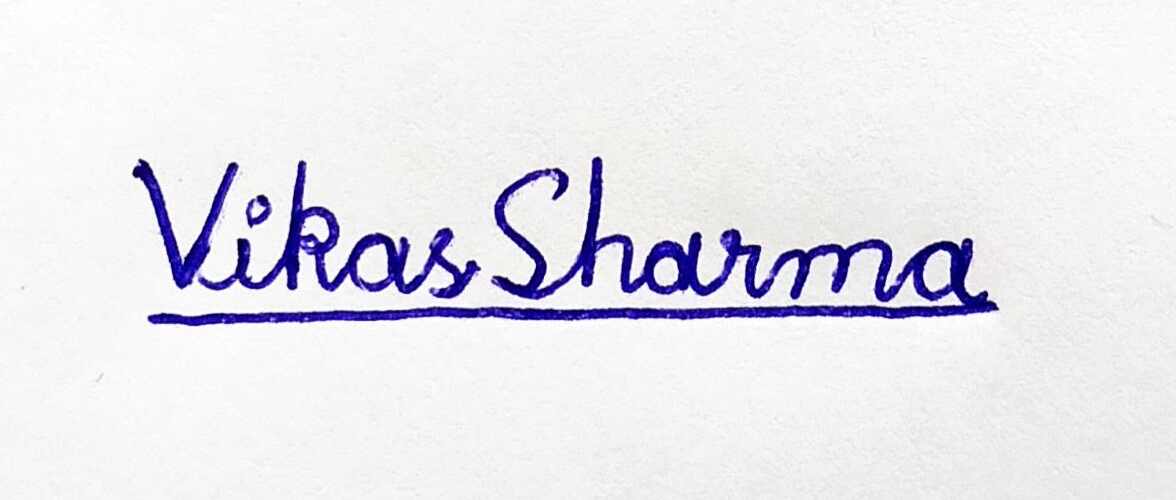 Vikas Sharma